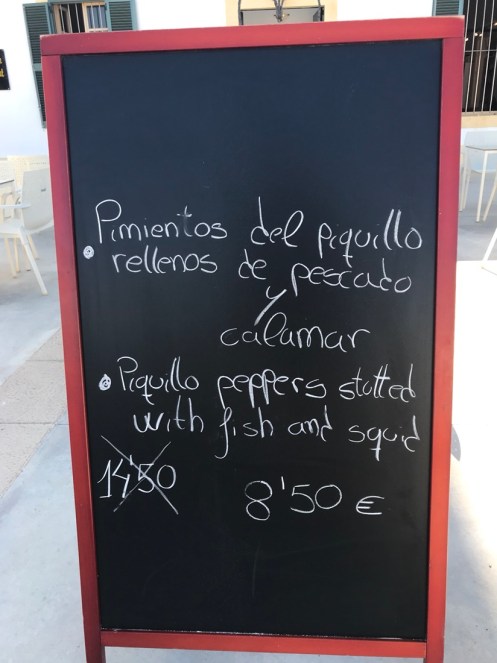 Pimientos del piquillo
rellenos de pescado
y
calamar
Piquillo peppers statted
with fish and squid
14'50
8'50 €